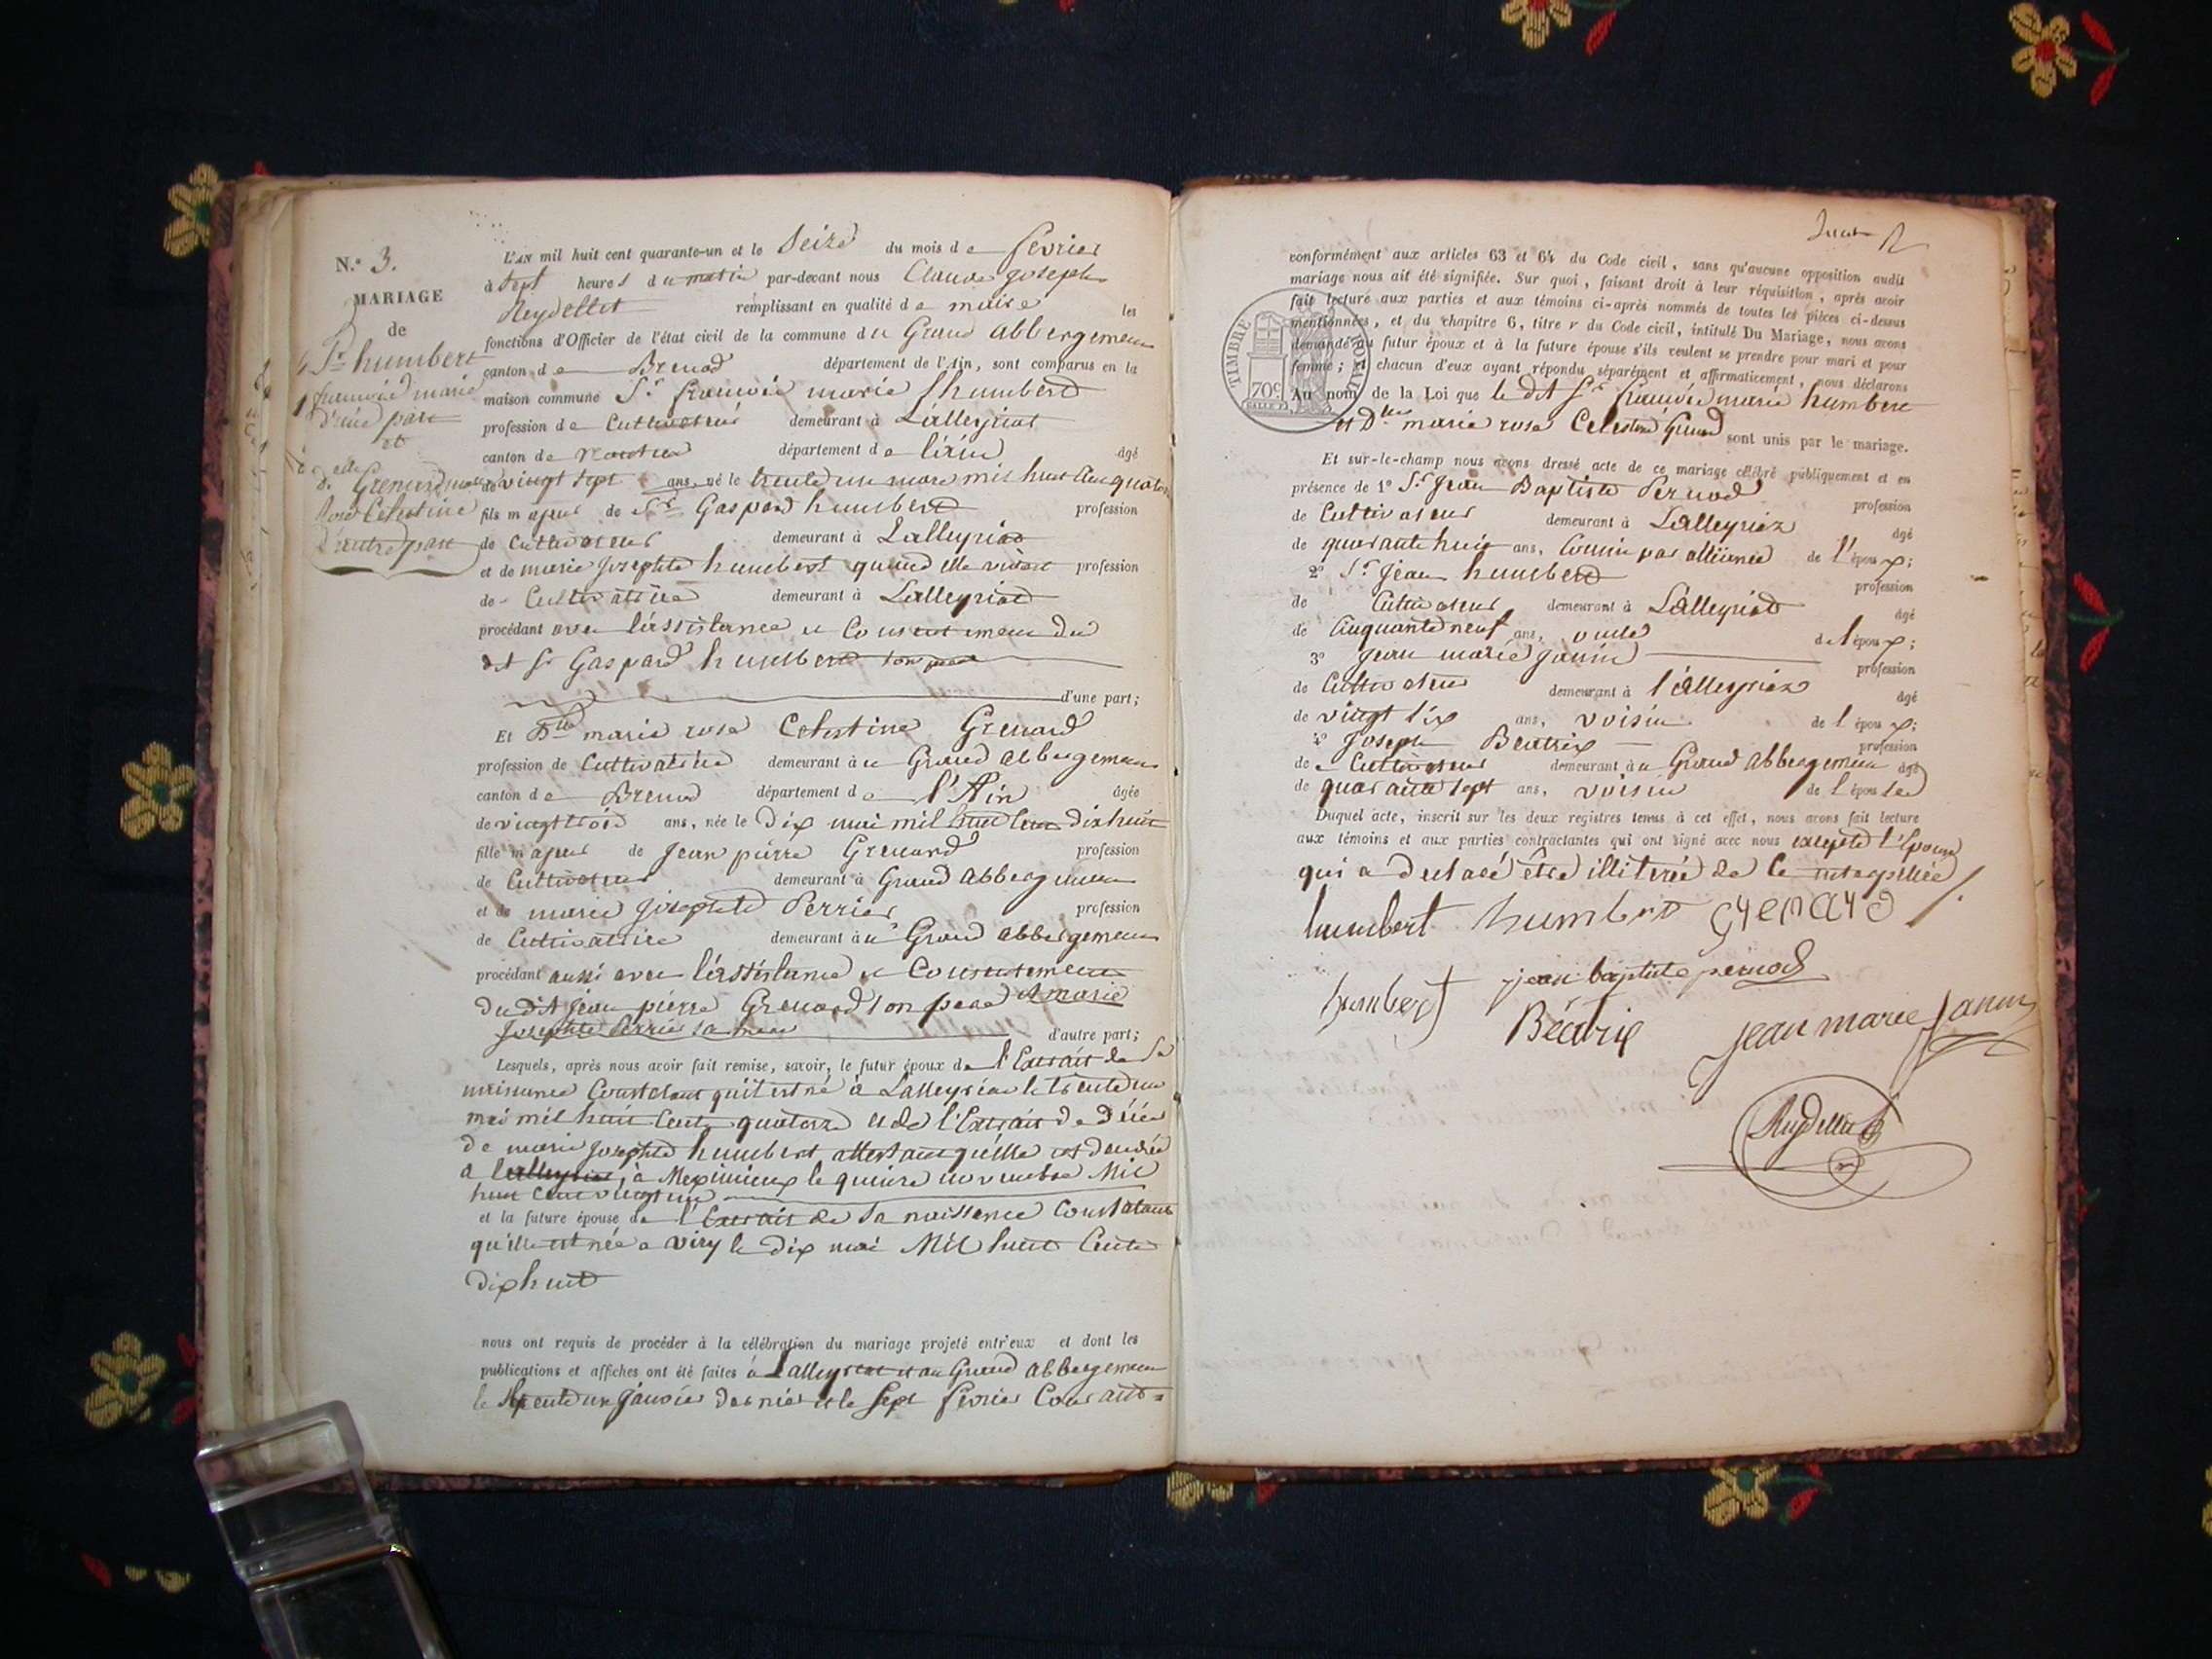 N.° 3.
MARIAGE
de
Sr humbert
françois marie
d'une part
et
dlle Grenard marie
rose Celestine
d'autre part
L'AN mil huit cent quarante-un et le Seize du mois de fevrier
à sept heures du matin par-devant nous Claude joseph
Reydellet remplissant en qualité de maire les
fonctions d'Officier de l'état civil de la commune du Grand abbergement
canton de Brenod département de l'Ain, sont comparus en la
maison commune Sr. françois marie humbert
profession de Cultivateur demeurant à Lalleyriat
canton de département de l'ain âgé
de vingt sept ans, né le trente un mars mil huit cent quatorze
fils majeur de Sr Gaspard humbert profession
de Cultivateur demeurant à Lalleyriat
et de marie josephte humbert quand elle vivait profession
de Cultivatrice demeurant à Lalleyriat
procédant avec l'assistance et Consentement du
dit Sr Gaspard humbert son père
d'une part;
Et Dlle marie rose Celestine Grenard
profession de Cultivatrice demeurant à u Grand abbergement
canton de Brenod département de l'Ain âgée
de vingt trois ans, née le dix mai mil huit cent dix huit
fille majeur de jean pierre Grenard profession
de Cultivateur demeurant à Grand abbergement
et de marie josephte Perrier profession
de Cultivatrice demeurant à u Grand abbergement
procédant aussi avec l'assistance et Consentement
du dit jean pierre Grenard son père et marie
josephte Perrier sa mère d'autre part;
Lesquels, après nous avoir fait remise, savoir, le futur époux de l'Extrait de sa
naissance Constatant qu'il est né à Lalleyriat le trente un
mai mil huit Cents quatorze et de l'Extrait de décés
de marie josephte humbert attestant qu'elle est décédée
a Lalleyriat, à Meximieux le quinze novembre Mil
huit cent vingt un
et la future épouse de l'Extrait de sa naissance Constatant
qu'elle est née a viry le dix mai Mil huit Cents
dix huit
nous ont requis de procéder à la célébration du mariage projeté entr'eux et dont les
publications et affiches ont été faites à Lalleyriat et au Grand abbergement
le trente un janvier dernier et le sept fevrier Courant =
conformément aux articles 63 et 64 du Code civil, sans qu'aucune opposition audit
mariage nous ait été signifiée. Sur quoi, faisant droit à leur réquisition, après avoir
fait lecture aux parties et aux témoins ci-après nommés de toutes les pièces ci-dessus
mentionnées, et du chapitre 6, titre V du Code civil, intitulé Du Mariage, nous avons
demandé au futur époux et à la future épouse s'ils veulent se prendre pour mari et pour
femme; et chacun d'eux ayant répondu séparément et affirmativement, nous déclarons
Au nom de la Loi que le dit Sr françois marie humbert
et Dlle marie rose Celestine Grenard sont unis par le mariage.
TIMBRE ROYAL
70c.
Et sur-le-champ nous avons dressé acte de ce mariage célébré publiquement et en
présence de 1° Sr jean Baptiste Pernod profession
de Cultivateur demeurant à Lalleyriaz âgé
de quarante huit ans, Cousin par alliance de l'époux;
2° Sr jean humbert profession
de Cultivateur demeurant à Lalleyriat âgé
de Cinquante neuf ans, oncle de l époux;
3° jean marie janin profession
de Cultivateur demeurant à l'alleyriaz âgé
de vingt six ans, voisin de l époux;
4° joseph Béatrix profession
de Cultivateur demeurant à u Grand abbergement âgé
de quarante sept ans, voisin de l épouse
Duquel acte, inscrit sur les deux registres tenus à cet effet, nous avons fait lecture
aux témoins et aux parties contractantes qui ont signé avec nous excepté l'épouse
qui a déclaré être illitérée de ce interpellée
humbert humbert grenard
humbert jean baptiste pernod
Béatrix jean marie janin
Reydellet